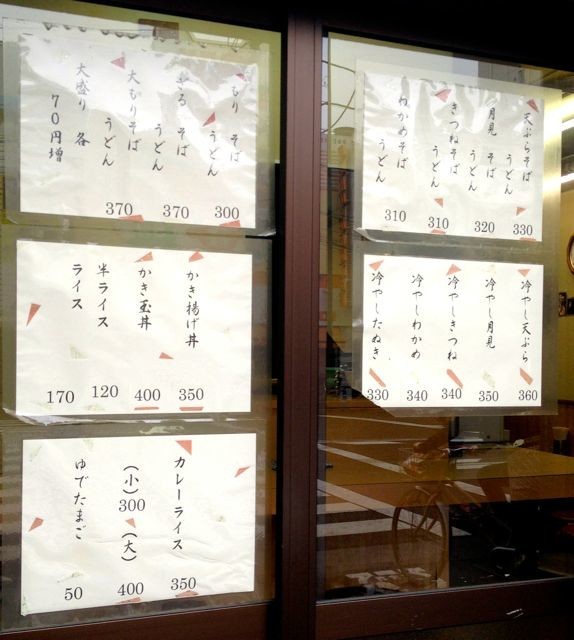 天ぷらそば
うどん
330
月見 そば
うどん
320
きつねそば
うどん
310
わかめそば
うどん
310
冷やし天ぷら
360
冷やし月見
350
冷やしきつね
340
冷やしわかめ
340
冷やしたぬき
330
もり そば
うどん
300
ざる そば
うどん
370
大もりそば
うどん
370
大盛り 各
70円増
かき揚げ丼
350
かき玉丼
400
半ライス
120
ライス
170
カレーライス
350
(小)
300
(大)
400
ゆでたまご
50